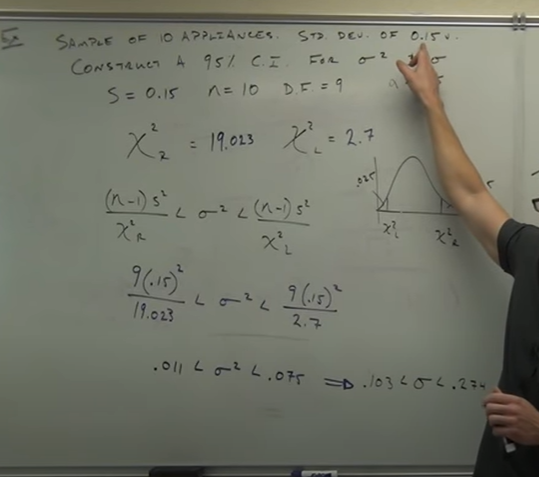 Ex SAMPLE OF 10 APPLIANCES. STD. DEV. OF 0.15 V.
CONSTRUCT A 95% C.I. FOR σ² σ
S = 0.15 n = 10 D.F. = 9
χ²_R = 19.023 χ²_L = 2.7
.025
χ²_L χ²_R
(n-1)s²/χ²_R < σ² < (n-1)s²/χ²_L
9(.15)²/19.023 < σ² < 9(.15)²/2.7
.011 < σ² < .075 ⇒ .103 < σ < .274